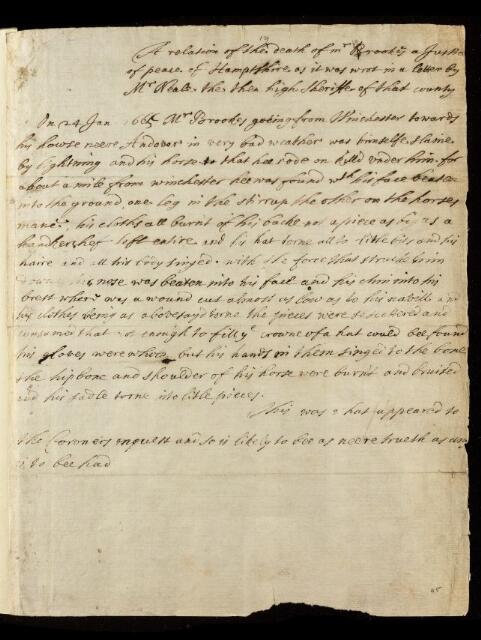 A relation of the death of mr Brookes a Justice
of peace of Hampshire as it was wrot in a letter by
Mr Neale the then high Sheriffe of that county
On 24 Jan 166 Mr Brookes goeing from Winchester towards
his howse neere Andover in very bad weather was himselfe slaine
by lightning and his horse that hee rode on killd under him for
about a mile from winchester hee was found wth his face beaten
into the ground, one leg in the stirrup the other on the horses
mane, his cloths all burnt of his backe not a piece as big as a
handkerchef left entire and his hat torne all to little bits and his
haire and all his body singed. with the force that struck him
downe his nose was beaten into his face and his chin into his
brest where was a wound cut almost as low as to his nabell and
his clothes being as abovesaid torne the pieces were scattered and
consumed that not enough to fill ye crowne of a hat could bee found
his gloves were whole but his hands in them singed to the bone
the hip bone and shoulder of his horse were burnt and bruised
and his sadle torne into little pieces.
This was what appeared to
the Coroners enquest and so is likely to bee as neere trueth as any
is to bee had